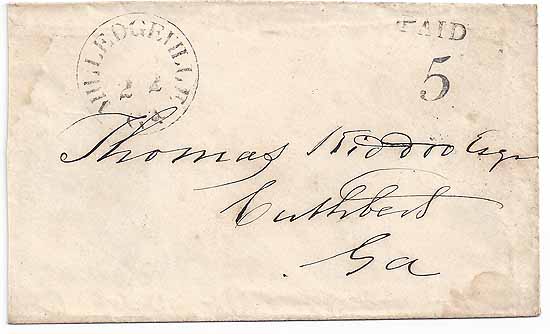 MILLEDGEVILLE
Ga
PAID
5
Thomas Kiddoo Esqr
Cuthbert
Ga